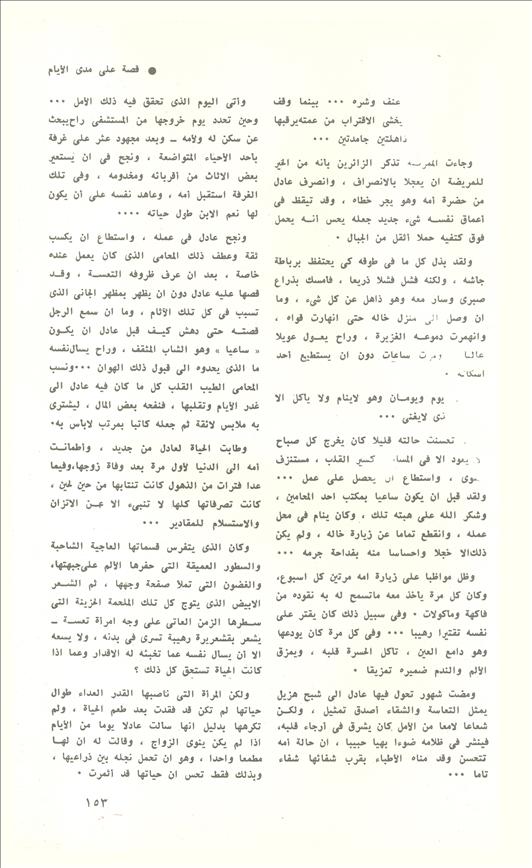 ● قصة على مدى الأيام
عنف وشره ··· بينما وقف
يخشى الاقتراب من عمته يرقبها
ذاهلتين جامدتين ···
وجاءت الممرضة تذكر الزائرين بأنه من الخير
للمريضة ان يعجلا بالانصراف ، وانصرف عادل
من حضرة أمه وهو يجر خطاه ، وقد تيقظ فى
أعماق نفسه شىء جديد جعله يحس أنه يحمل
فوق كتفيه حملا أثقل من الجبال ·
ولقد بذل كل ما فى طوقه كى يحتفظ برباطة
جاشه ، ولكنه فشل فشلا ذريعا ، فامسك بذراع
صبرى وسار معه وهو ذاهل عن كل شىء ، وما
ان وصل الى منزل خاله حتى انهارت قواه ،
وانهمرت دموعه الغزيرة ، وراح يعول عويلا
عاليا ومرت ساعات دون ان يستطيع أحد
اسكاته ·
يوم ويومان وهو لاينام ولا ياكل الا
ى لايفتى ···
تحسنت حالته قليلا كان يخرج كل صباح
يعود الا فى المساء كسير القلب ، مستنزف
وى ، واستطاع ان يحصل على عمل ···
ولقد قبل ان يكون ساعيا بمكتب احد المحامين ،
وشكر الله على هبته تلك ، وكان ينام فى محل
عمله ، وانقطع تماما عن زيارة خاله ، ولم يكن
ذلك الا خجلا واحساسا منه بفداحة جرمه ···
وظل مواظبا على زيارة امه مرتين كل اسبوع،
وكان كل مرة ياخذ معه ماتسمح له به نقوده من
فاكهة وماكولات · وفى سبيل ذلك كان يقتر على
نفسه تقتيرا رهيبا ··· وفى كل مرة كان يودعها
وهو دامع العين ، تاكل الحسرة قلبه ، ويمزق
الألم والندم ضميره تمزيقا ·
ومضت شهور تحول فيها عادل الى شبح هزيل
يمثل التعاسة والشقاء أصدق تمثيل ، ولكن
شعاعا لامعا من الأمل كان يشرق فى أرجاء قلبه،
فينشر فى ظلامه ضوءا بهيا حبيبا ، ان حالة أمه
تتحسن وقد مناه الأطباء بقرب شفائها شفاء
تاما ···
وأتى اليوم الذى تحقق فيه ذلك الأمل ···
وحين تحدد يوم خروجها من المستشفى راح يبحث
عن سكن له ولأمه ـ وبعد مجهود عثر على غرفة
بأحد الأحياء المتواضعة ، ونجح فى ان يستعير
بعض الاثاث من أقربائه ومخدومه ، وفى تلك
الغرفة استقبل أمه ، وعاهد نفسه على أن يكون
لها نعم الابن طول حياته ····
ونجح عادل فى عمله ، واستطاع ان يكسب
ثقة وعطف ذلك المحامى الذى كان يعمل عنده
خاصة ، بعد ان عرف ظروفه التعسة ، وقد
قصها عليه عادل دون ان يظهر بمظهر الجانى الذى
تسبب فى كل تلك الآثام ، وما ان سمع الرجل
قصته حتى دهش كيف قبل عادل ان يكون
« ساعيا » وهو الشاب المثقف ، وراح يسال نفسه
ما الذى يعدوه الى قبول ذلك الهوان ··· ونسب
المحامى الطيب القلب كل ما كان فيه عادل الى
غدر الأيام وتقلبها ، فنفحه بعض المال ، ليشترى
به ملابس لائقة ثم جعله كاتبا بمرتب لاباس به·
وطابت الحياة لعادل من جديد ، وأطمانت
أمه الى الدنيا لأول مرة بعد وفاة زوجها، وفيما
عدا فترات من الذهول كانت تنتابها من حين لحين ،
كانت تصرفاتها كلها لا تنبىء الا عن الاتزان
والاستسلام للمقادير ···
وكان الذى يتفرس قسماتها العاجية الشاحبة
والسطور العميقة التى حفرها الألم على جبهتها،
والغضون التى تملأ صفحة وجهها ، ثم الشعر
الابيض الذى يتوج كل تلك الملحمة الحزينة التى
سطرها الزمن العاتى على وجه امرأة تعسة ـ
يشعر بقشعريرة رهيبة تسرى فى بدنه ، ولا يسعه
الا أن يسال نفسه عما تخبئه له الاقدار وعما اذا
كانت الحياة تستحق كل ذلك ؟
ولكن المرأة التى ناصبها القدر العداء طوال
حياتها لم تكن قد فقدت بعد طعم الحياة ، ولم
تكرهها بدليل انها سالت عادلا يوما من الأيام
اذا لم يكن ينوى الزواج ، وقالت له ان لها
مطمعا واحدا ، وهو ان تحمل نجله بين ذراعيها ،
وبذلك فقط تحس ان حياتها قد أثمرت ·
١٥٣